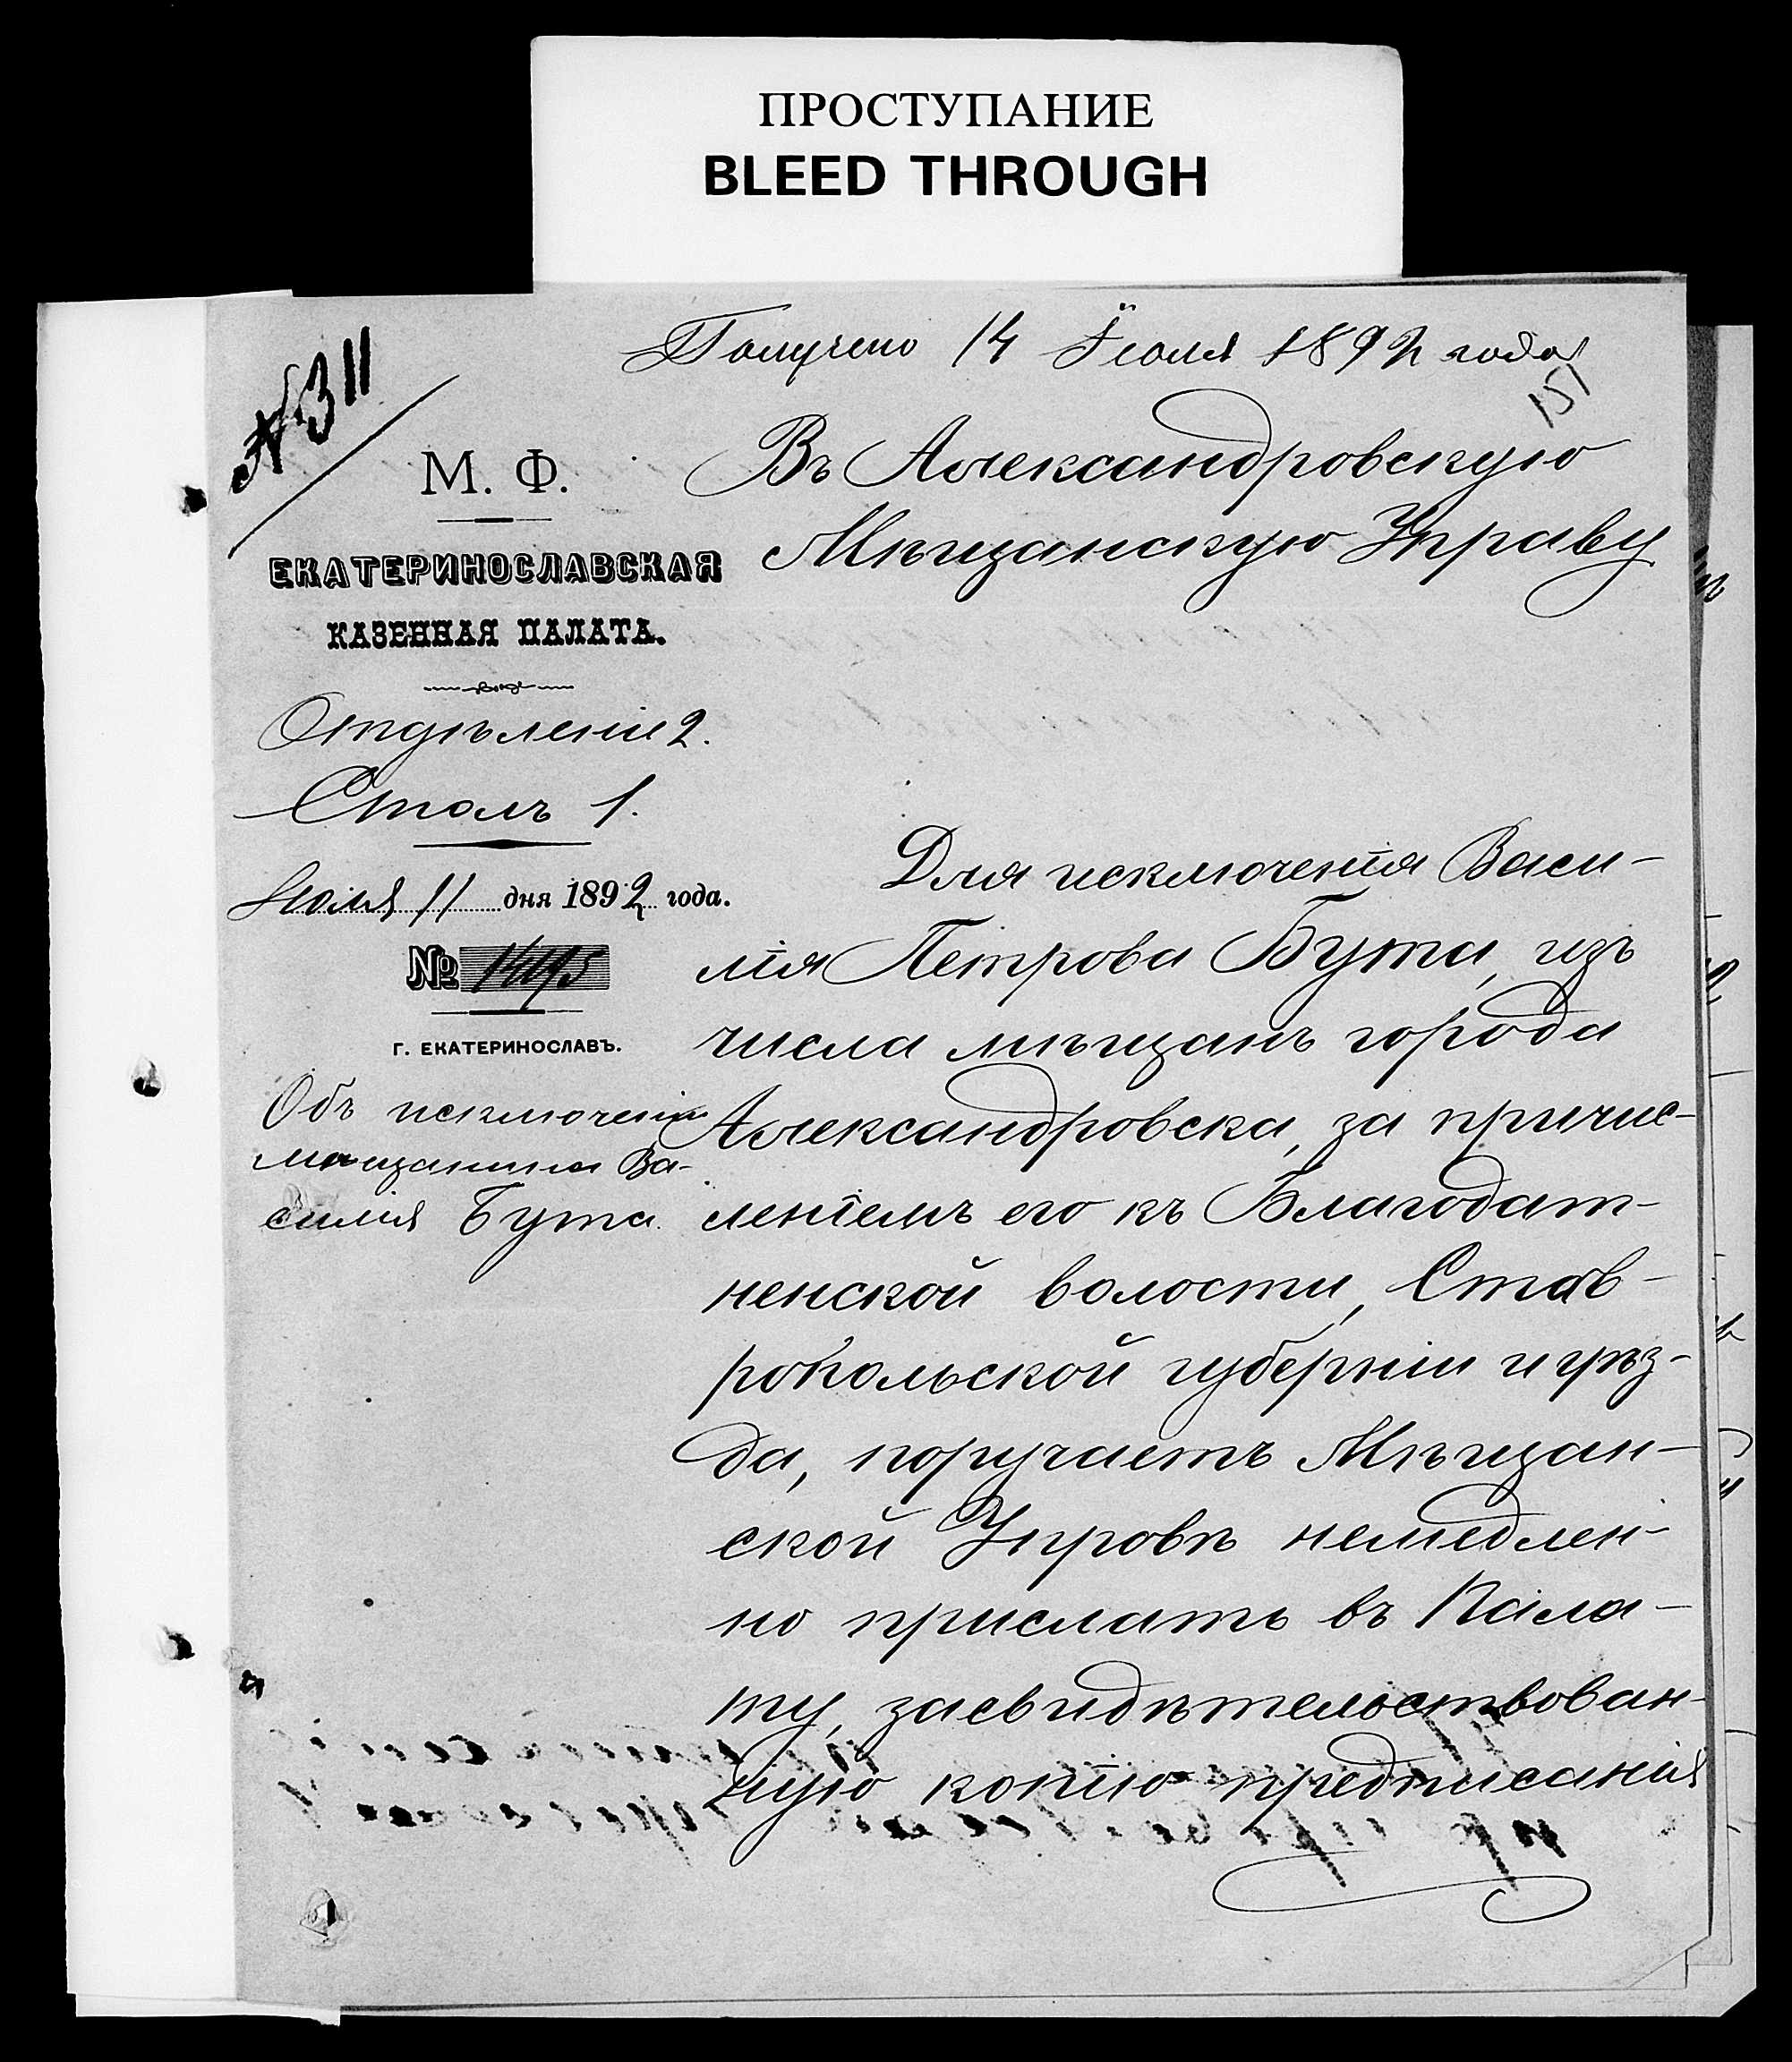 ПРОСТУПАНИЕ
BLEED THROUGH
Получено 14 Іюля 1892 года
151
№311
М. Ф.
ЕКАТЕРИНОСЛАВСКАЯ
КАЗЕННАЯ ПАЛАТА.
Отдѣленіе 2.
Столъ 1.
Іюля 11 дня 1892 года.
№
г. ЕКАТЕРИНОСЛАВЪ.
Объ исключеніи
мѣщанина Ва-
силія Бута.
Въ Александровскую
Мѣщанскую Управу
Для исключенія Васи-
лія Петрова Бута, изъ
числа мѣщанъ города
Александровска, за причис-
леніемъ его къ Благодат-
ненской волости, Став-
ропольской губерніи и уѣз-
да, поручаетъ Мѣщан-
ской Управѣ немедлен-
но прислать въ Пала-
ту, засвидѣтельствован-
ную копію предписанія